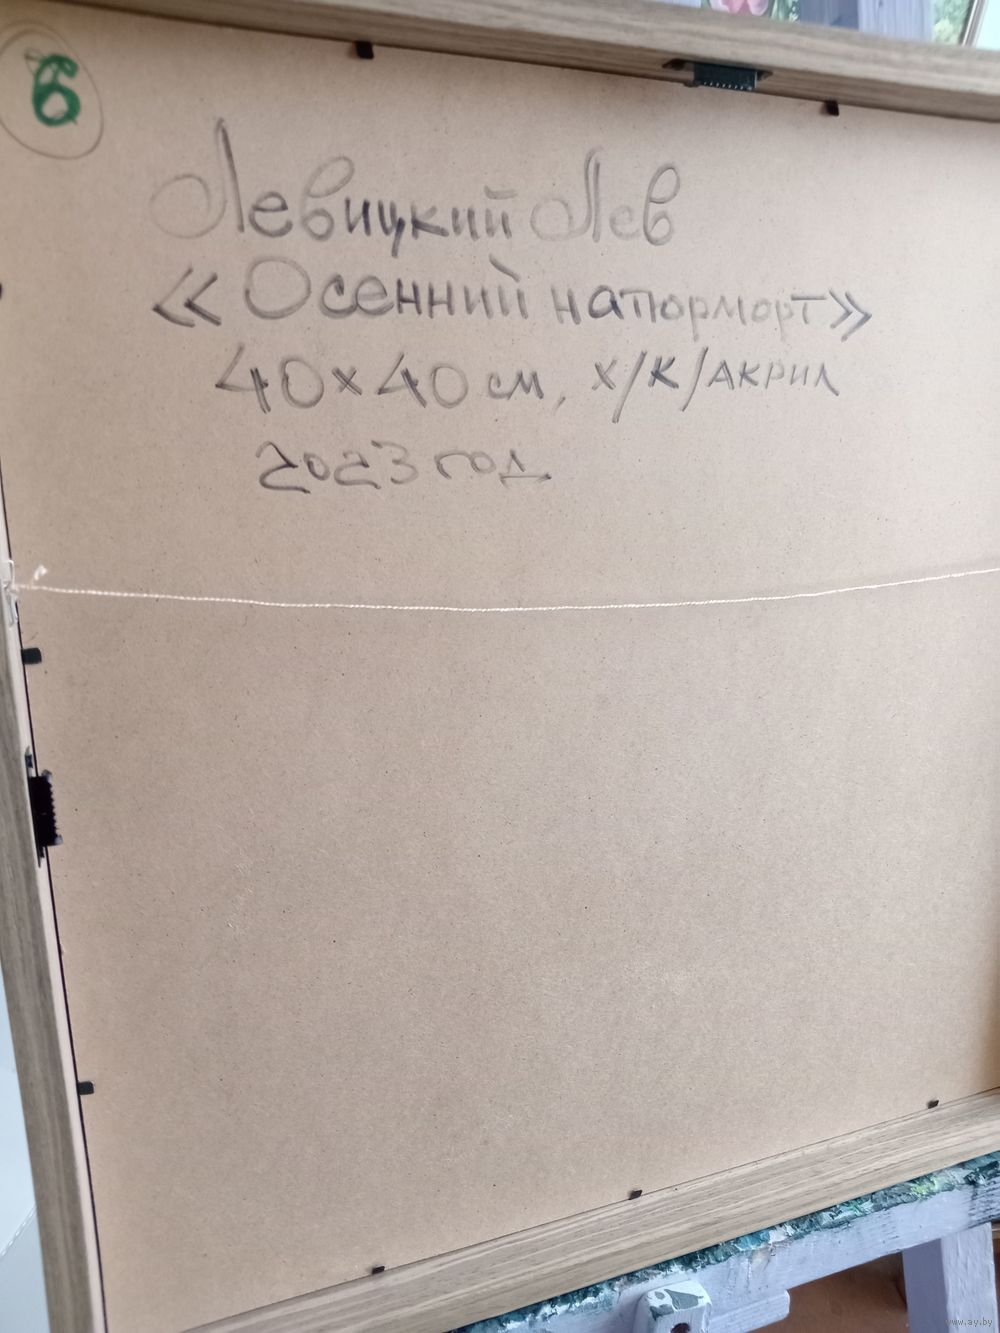 6
Левицкий Лев
«Осенний натюрморт»
40×40 см, х/к/акрил
2023 год
www.ay.by